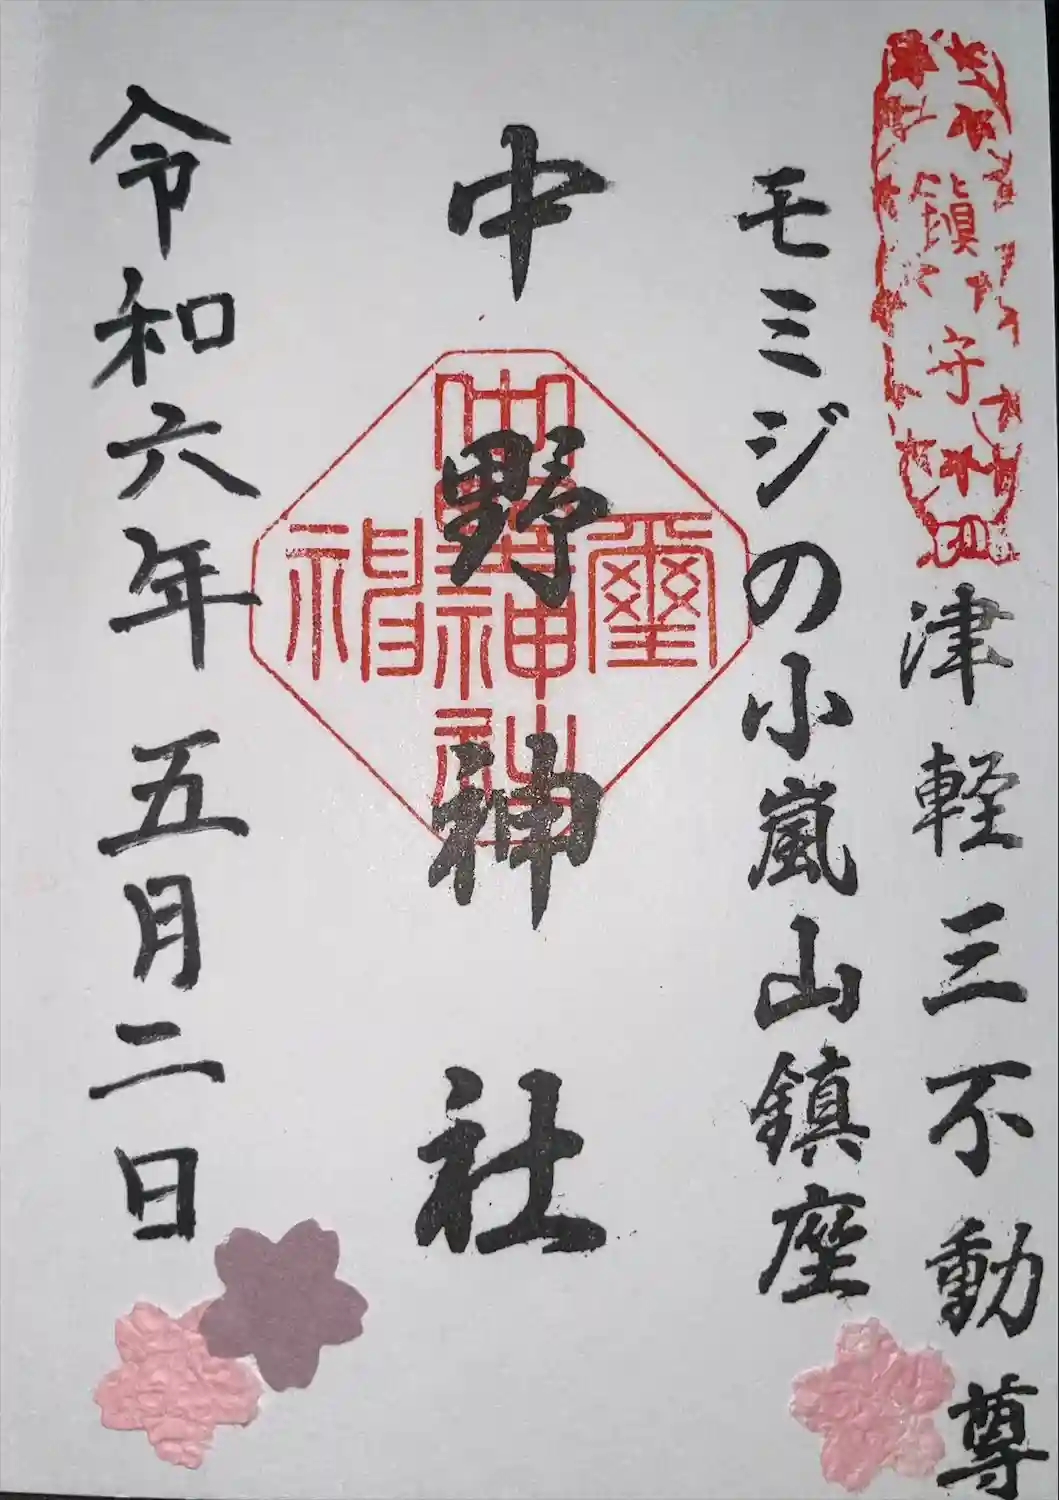 鎮守
津軽三不動尊
モミジの小嵐山鎮座
中野神社
令和六年五月二日